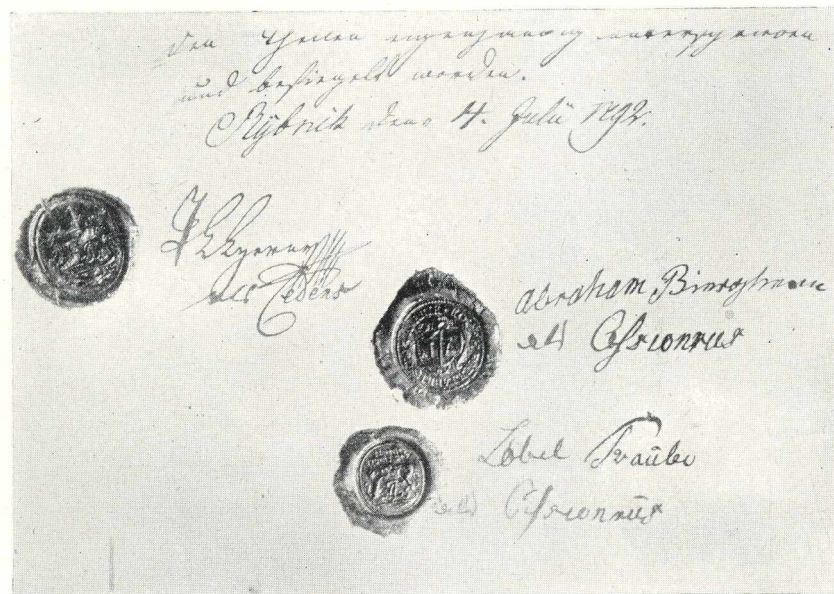 den Theilen eigenhändig unterschrieben
und besiegelt worden.
Rÿbnik den 4. Julii 1792.
als Cedens
Abraham
als Cessionarius
Löbel Traube
als Cessionarius